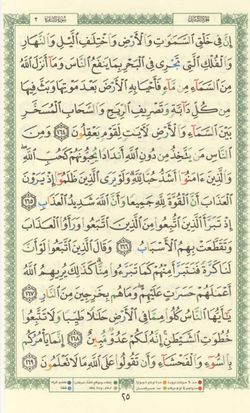 إِنَّ فِي خَلْقِ ٱلسَّمَٰوَٰتِ وَٱلْأَرْضِ وَٱخْتِلَٰفِ ٱلَّيْلِ وَٱلنَّهَارِ
وَٱلْفُلْكِ ٱلَّتِي تَجْرِي فِي ٱلْبَحْرِ بِمَا يَنفَعُ ٱلنَّاسَ وَمَآ أَنزَلَ ٱللَّهُ
مِنَ ٱلسَّمَآءِ مِن مَّآءٍ فَأَحْيَا بِهِ ٱلْأَرْضَ بَعْدَ مَوْتِهَا وَبَثَّ فِيهَا
مِن كُلِّ دَآبَّةٍ وَتَصْرِيفِ ٱلرِّيَٰحِ وَٱلسَّحَابِ ٱلْمُسَخَّرِ
بَيْنَ ٱلسَّمَآءِ وَٱلْأَرْضِ لَءَايَٰتٍ لِّقَوْمٍ يَعْقِلُونَ ١٦٤ وَمِنَ
ٱلنَّاسِ مَن يَتَّخِذُ مِن دُونِ ٱللَّهِ أَندَادًا يُحِبُّونَهُمْ كَحُبِّ ٱللَّهِ
وَٱلَّذِينَ ءَامَنُوٓا۟ أَشَدُّ حُبًّا لِّلَّهِ وَلَوْ يَرَى ٱلَّذِينَ ظَلَمُوٓا۟ إِذْ يَرَوْنَ
ٱلْعَذَابَ أَنَّ ٱلْقُوَّةَ لِلَّهِ جَمِيعًا وَأَنَّ ٱللَّهَ شَدِيدُ ٱلْعَذَابِ ١٦٥
إِذْ تَبَرَّأَ ٱلَّذِينَ ٱتُّبِعُوا۟ مِنَ ٱلَّذِينَ ٱتَّبَعُوا۟ وَرَأَوُا۟ ٱلْعَذَابَ
وَتَقَطَّعَتْ بِهِمُ ٱلْأَسْبَابُ ١٦٦ وَقَالَ ٱلَّذِينَ ٱتَّبَعُوا۟ لَوْ أَنَّ
لَنَا كَرَّةً فَنَتَبَرَّأَ مِنْهُمْ كَمَا تَبَرَّءُوا۟ مِنَّا كَذَٰلِكَ يُرِيهِمُ ٱللَّهُ
أَعْمَٰلَهُمْ حَسَرَٰتٍ عَلَيْهِمْ وَمَا هُم بِخَٰرِجِينَ مِنَ ٱلنَّارِ
١٦٧ يَٰٓأَيُّهَا ٱلنَّاسُ كُلُوا۟ مِمَّا فِي ٱلْأَرْضِ حَلَٰلًا طَيِّبًا وَلَا تَتَّبِعُوا۟
خُطُوَٰتِ ٱلشَّيْطَٰنِ إِنَّهُ لَكُمْ عَدُوٌّ مُّبِينٌ ١٦٨ إِنَّمَا يَأْمُرُكُم
بِٱلسُّوٓءِ وَٱلْفَحْشَآءِ وَأَن تَقُولُوا۟ عَلَى ٱللَّهِ مَا لَا تَعْلَمُونَ ١٦٩
٢٥